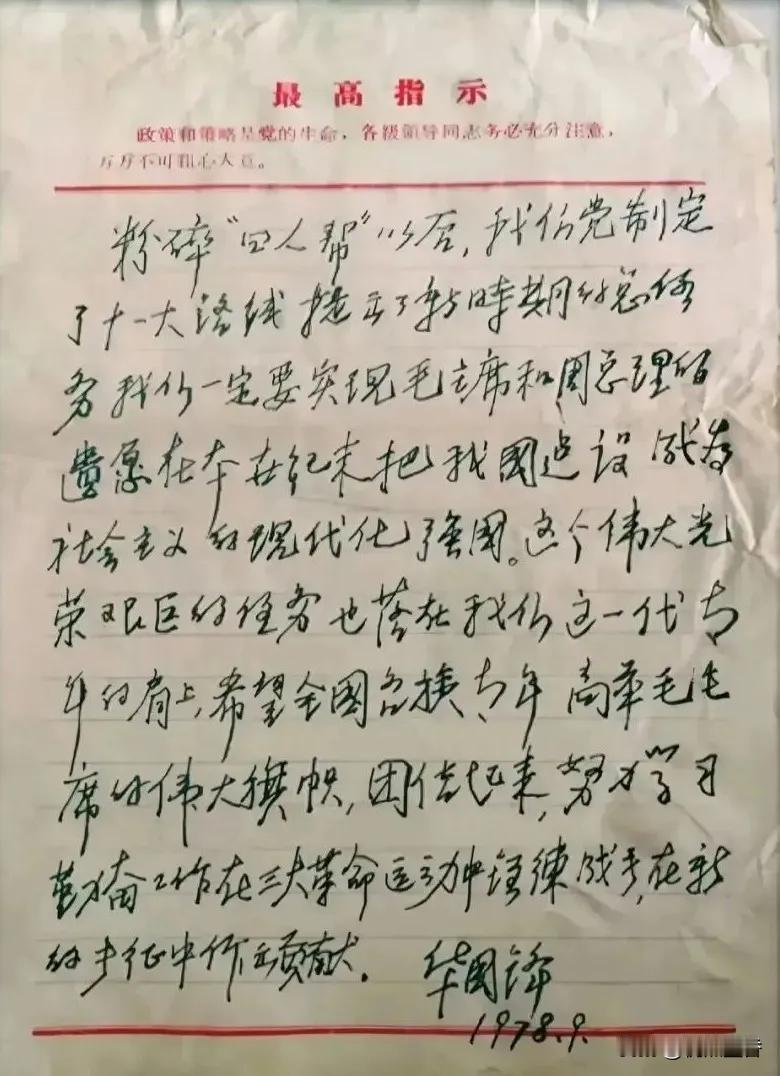 最高指示
政策和策略是党的生命，各级领导同志务必充分注意，
万万不可粗心大意。
粉碎“四人帮”以后，我们党制定
了十一大路线提出了新時期的总任
务我们一定要实现毛主席和周总理的
遗愿在本世纪末把我國建设成为
社会主义的现代化强國。这个伟大光
荣艰巨的任务也落在我们这一代青
年的肩上，希望全國各族青年高举毛主
席的伟大旗帜，团结起来，努力学习
勤奋工作在三大革命运动中锻練成长，在新
的长征中作出贡献。华國锋
1978.9.